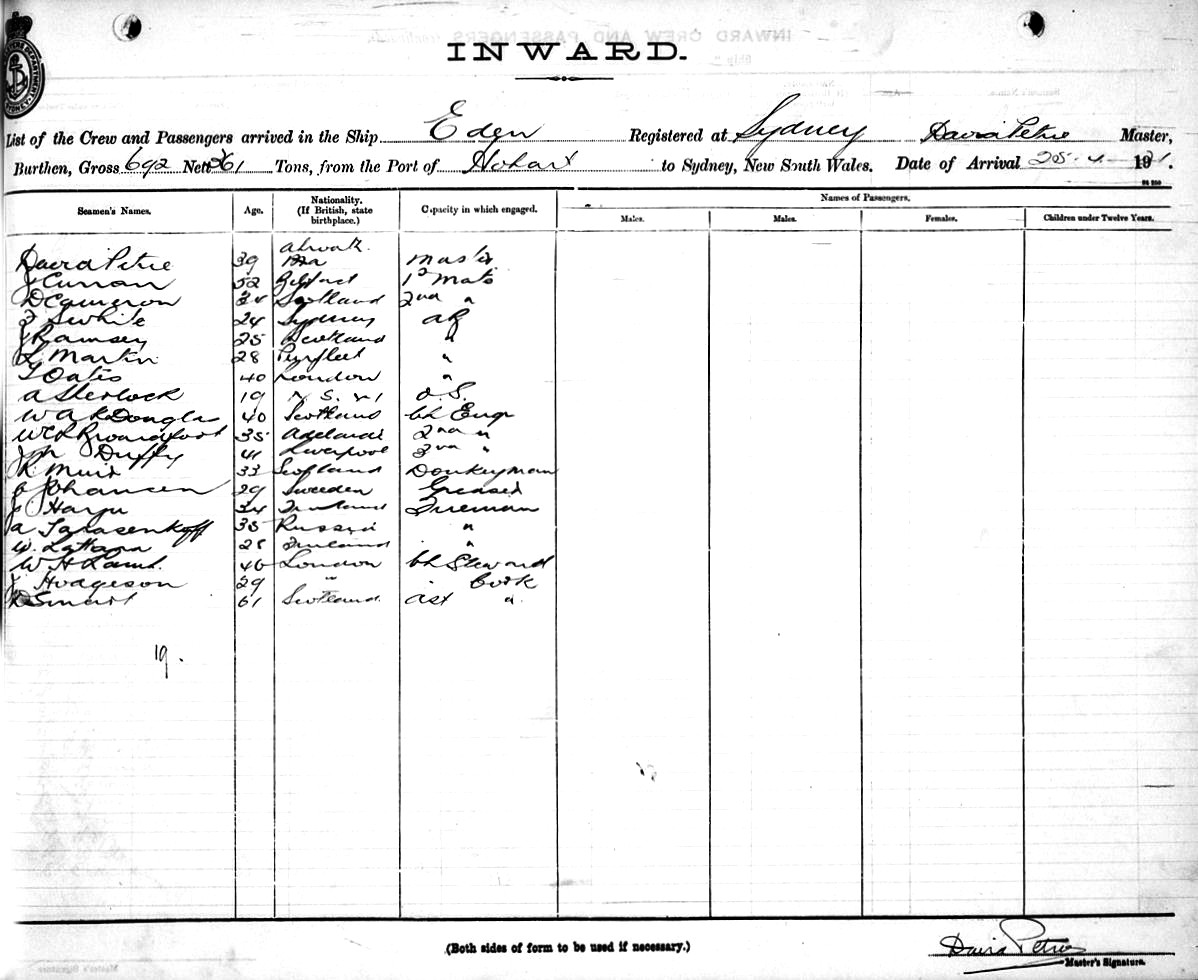 INWARD.
List of the Crew and Passengers arrived in the Ship Eden Registered at Sydney David Petrie Master,
Burthen, Gross 692 Nett 261 Tons, from the Port of Hobart to Sydney, New South Wales. Date of Arrival 25-4-1921.
Seamen's Names. Age. Nationality. (If British, state birthplace.) Capacity in which engaged. Names of Passengers.
Males. Males. Females. Children under Twelve Years.
David Petrie 39 Master
J Curran 52 Belfast 1st Mate
D Cameron 34 Scotland 2nd "
White 24 Sydney AB
J Ramsey 25 Scotland "
L Martin 28 Purfleet "
T Oates 40 London "
A Sherlock 19 N.S.W O.S.
W A Douglas 40 Scotland Ch Engr
Broadfoot 35 Adelaide 2nd "
Duffy 41 Liverpool 3rd "
R Muir 33 Scotland Donkeyman
Johansen 29 Sweeden Greaser
J Harju 34 Finland Fireman
A Tarasenkoff 35 Russia "
W. 28 Finland "
W H Lamb 40 London Ch Steward
J Hodgeson 29 " Cook
D Smart 61 Scotland Ast "
19.
(Both sides of form to be used if necessary.)
David Petrie
Master's Signature.